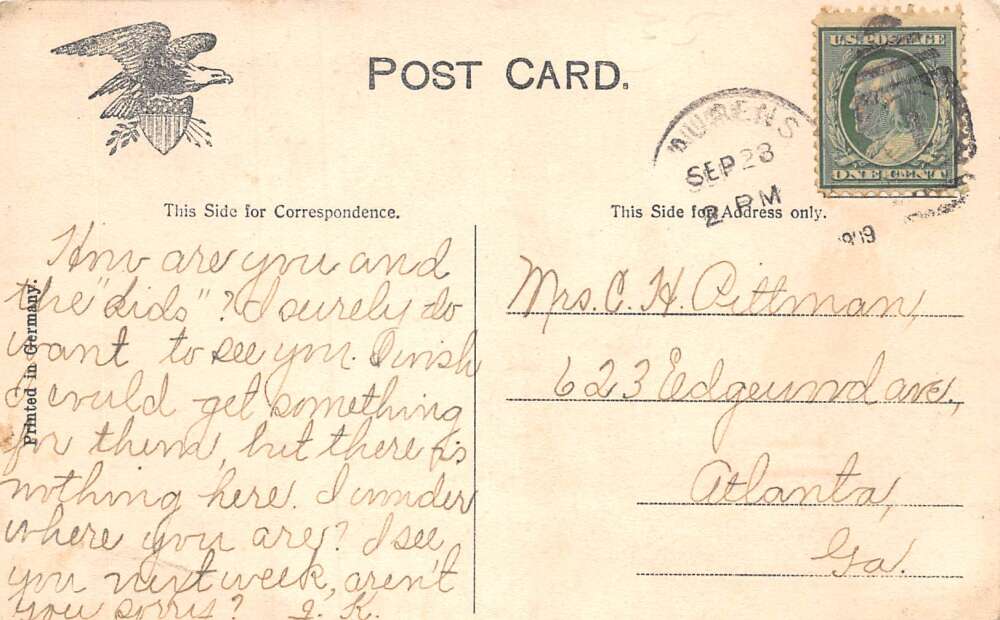 POST CARD.
U.S. POSTAGE
ONE CENT
AURENS
SEP 23
2 PM
1909
This Side for Correspondence.
This Side for Address only.
Printed in Germany.
How are you and
the "kids"? I surely do
want to see you. I wish
I could get something
for them, but there is
nothing here. I wonder
where you are? I see
you next week, aren't
you sorry? J. K.
Mrs. C. H. Pittman,
623 Edgewood ave.,
Atlanta,
Ga.